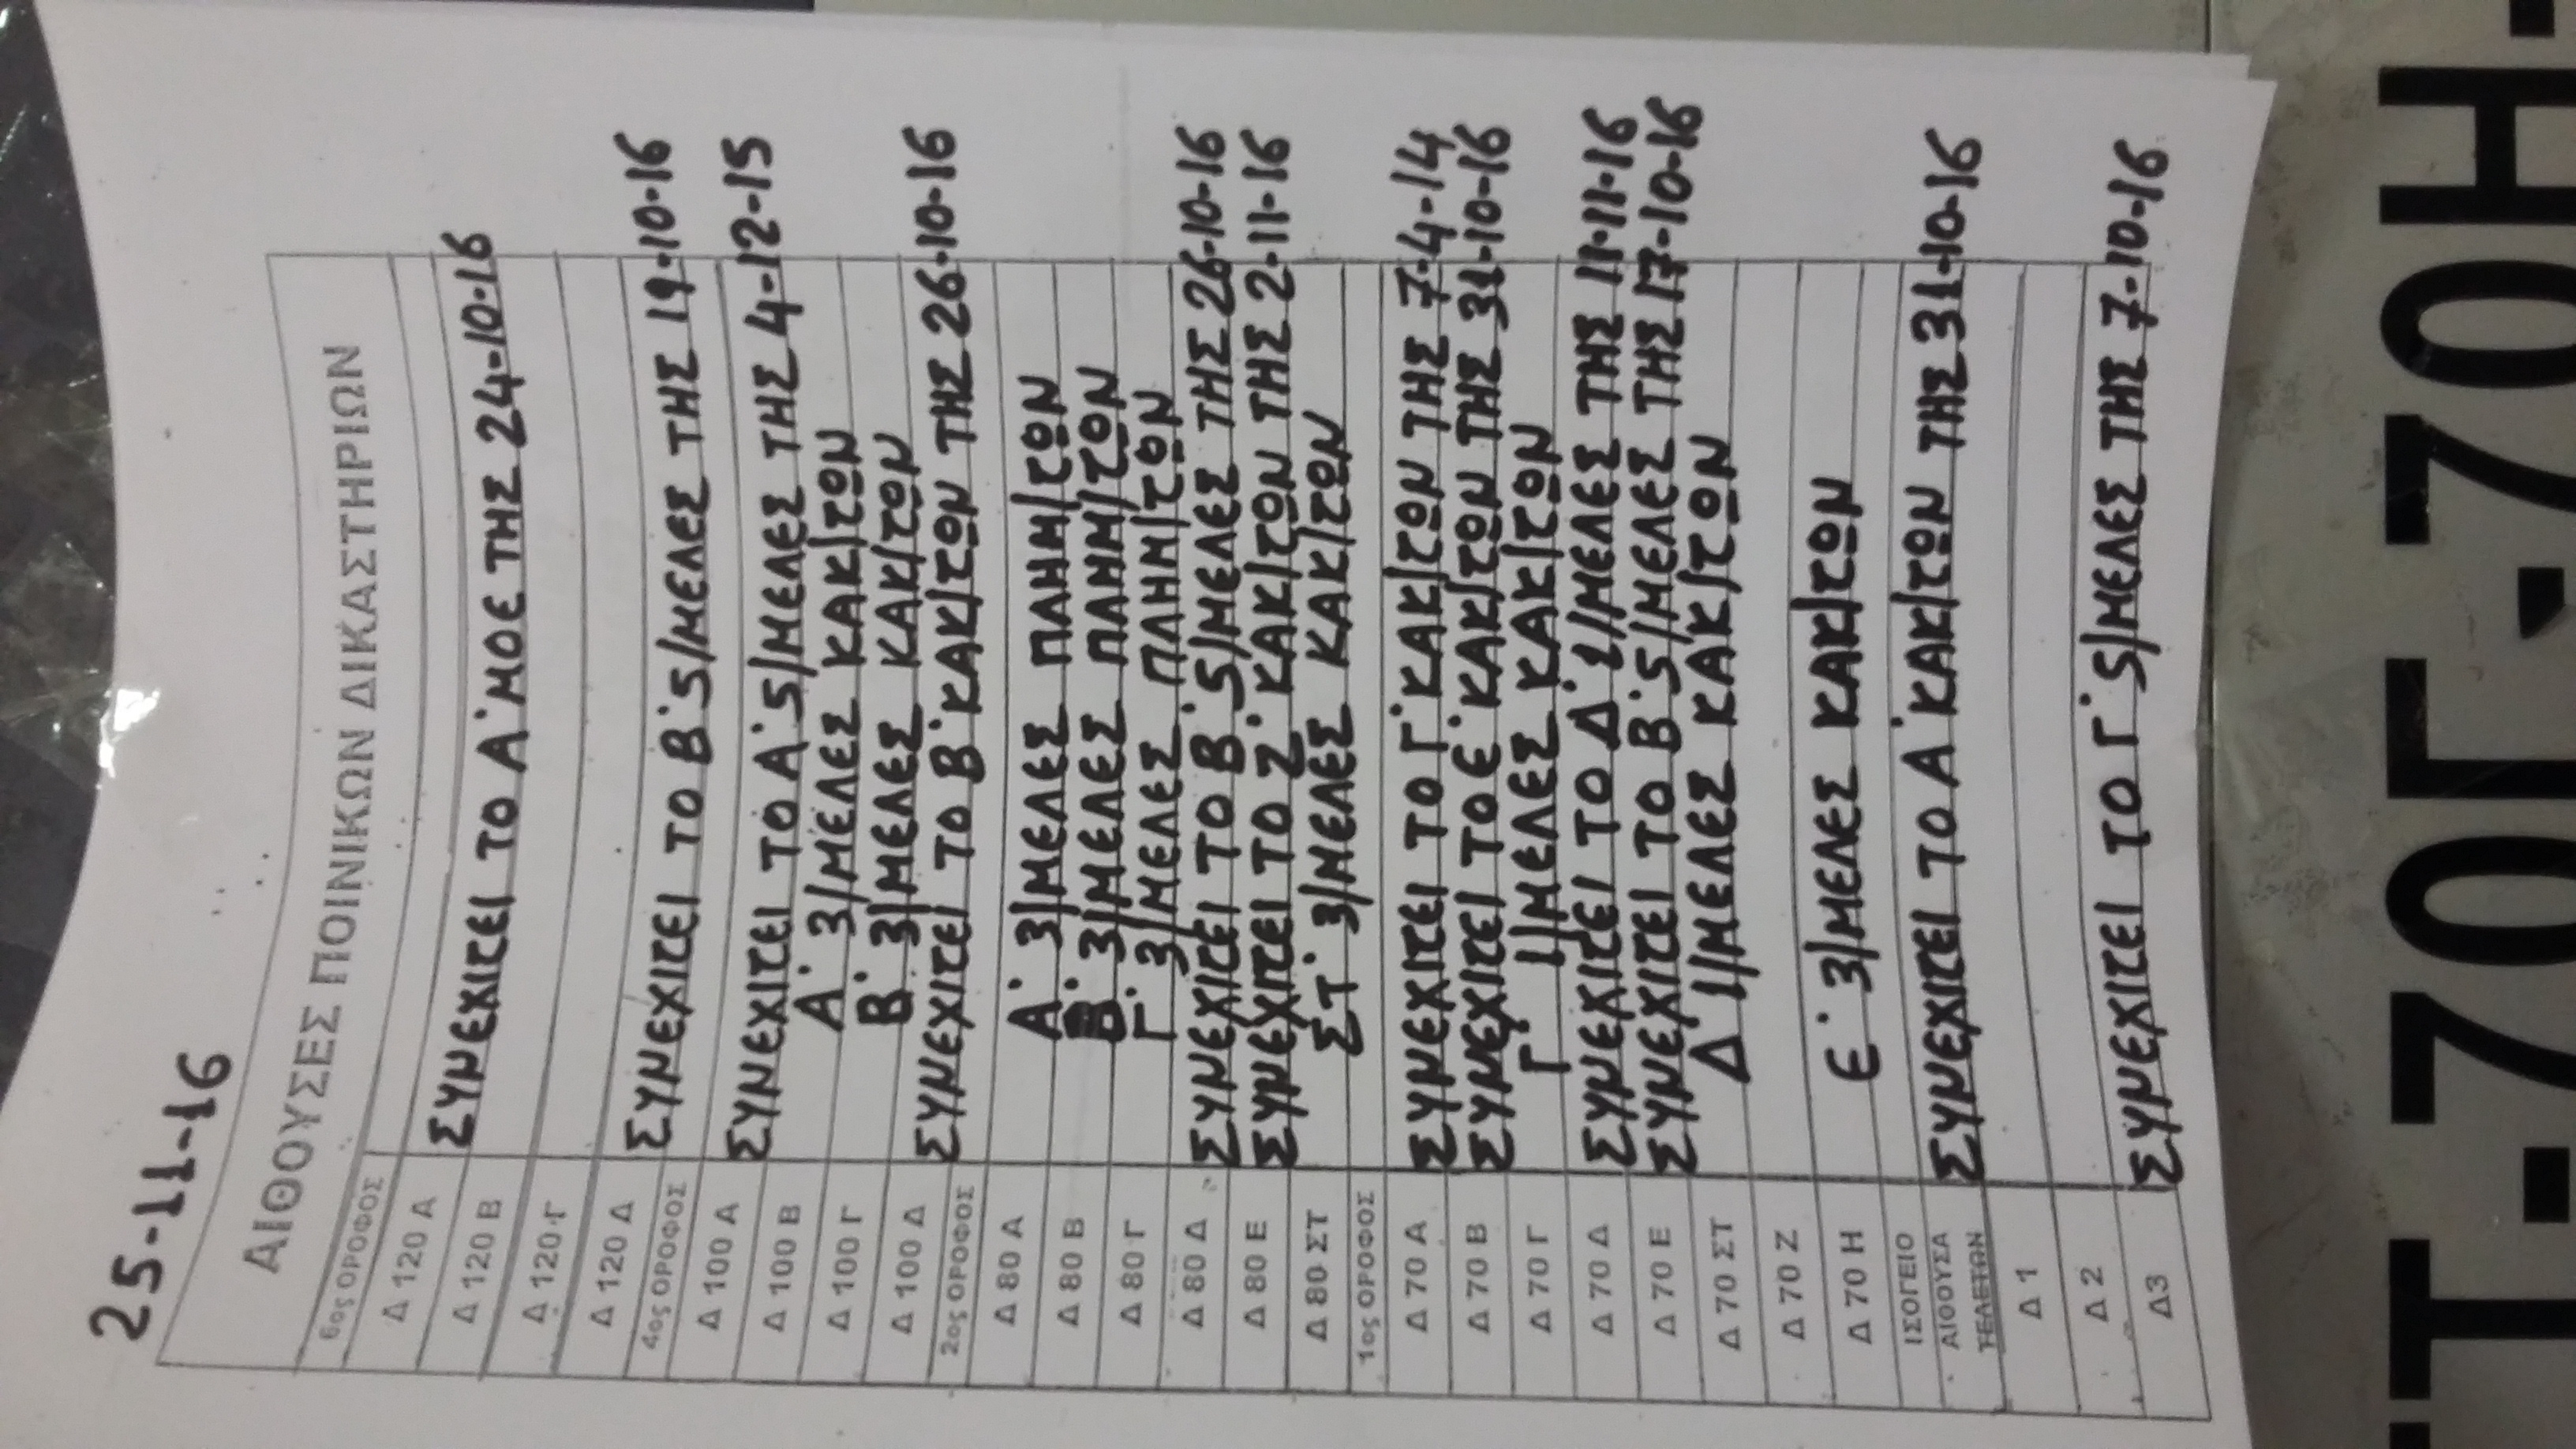 25-11-16
ΑΙΘΟΥΣΕΣ ΠΟΙΝΙΚΩΝ ΔΙΚΑΣΤΗΡΙΩΝ
6ος ΟΡΟΦΟΣ
Δ 120 Α
Δ 120 Β ΣΥΝΕΧΙΖΕΙ ΤΟ Α΄ ΜΟΕ ΤΗΣ 24-10-16
Δ 120 Γ
Δ 120 Δ ΣΥΝΕΧΙΖΕΙ ΤΟ Β΄ 5/ΜΕΛΕΣ ΤΗΣ 19-10-16
4ος ΟΡΟΦΟΣ
Δ 100 Α ΣΥΝΕΧΙΖΕΙ ΤΟ Α΄ 5/ΜΕΛΕΣ ΤΗΣ 4-12-15
Δ 100 Β Α΄ 3/ΜΕΛΕΣ ΚΑΚ/ΤΩΝ
Δ 100 Γ Β΄ 3/ΜΕΛΕΣ ΚΑΚ/ΤΩΝ
Δ 100 Δ ΣΥΝΕΧΙΖΕΙ ΤΟ Β΄ ΚΑΚ/ΤΩΝ ΤΗΣ 26-10-16
2ος ΟΡΟΦΟΣ
Δ 80 Α Α΄ 3/ΜΕΛΕΣ ΠΛΗΜ/ΤΩΝ
Δ 80 Β Β΄ 3/ΜΕΛΕΣ ΠΛΗΜ/ΤΩΝ
Δ 80 Γ Γ΄ 3/ΜΕΛΕΣ ΠΛΗΜ/ΤΩΝ
Δ 80 Δ ΣΥΝΕΧΙΖΕΙ ΤΟ Β΄ 5/ΜΕΛΕΣ ΤΗΣ 26-10-16
Δ 80 Ε ΣΥΝΕΧΙΖΕΙ ΤΟ Ζ΄ ΚΑΚ/ΤΩΝ ΤΗΣ 2-11-16
Δ 80 ΣΤ ΣΤ΄ 3/ΜΕΛΕΣ ΚΑΚ/ΤΩΝ
1ος ΟΡΟΦΟΣ
Δ 70 Α ΣΥΝΕΧΙΖΕΙ ΤΟ Γ΄ ΚΑΚ/ΤΩΝ ΤΗΣ 7-4-14
Δ 70 Β ΣΥΝΕΧΙΖΕΙ ΤΟ Ε΄ ΚΑΚ/ΤΩΝ ΤΗΣ 31-10-16
Δ 70 Γ Γ΄ 1/ΜΕΛΕΣ ΚΑΚ/ΤΩΝ
Δ 70 Δ ΣΥΝΕΧΙΖΕΙ ΤΟ Δ΄ 1/ΜΕΛΕΣ ΤΗΣ 11-11-16
Δ 70 Ε ΣΥΝΕΧΙΖΕΙ ΤΟ Β΄ 5/ΜΕΛΕΣ ΤΗΣ 17-10-16
Δ 70 ΣΤ Δ΄ 1/ΜΕΛΕΣ ΚΑΚ/ΤΩΝ
Δ 70 Ζ
Δ 70 Η Ε΄ 3/ΜΕΛΕΣ ΚΑΚ/ΤΩΝ
ΙΣΟΓΕΙΟ
ΑΙΘΟΥΣΑ ΣΥΝΕΧΙΖΕΙ ΤΟ Α΄ ΚΑΚ/ΤΩΝ ΤΗΣ 31-10-16
ΤΕΛΕΤΩΝ
Δ 1
Δ 2
Δ3 ΣΥΝΕΧΙΖΕΙ ΤΟ Γ΄ 5/ΜΕΛΕΣ ΤΗΣ 7-10-16
Τ-70Γ-70Η-